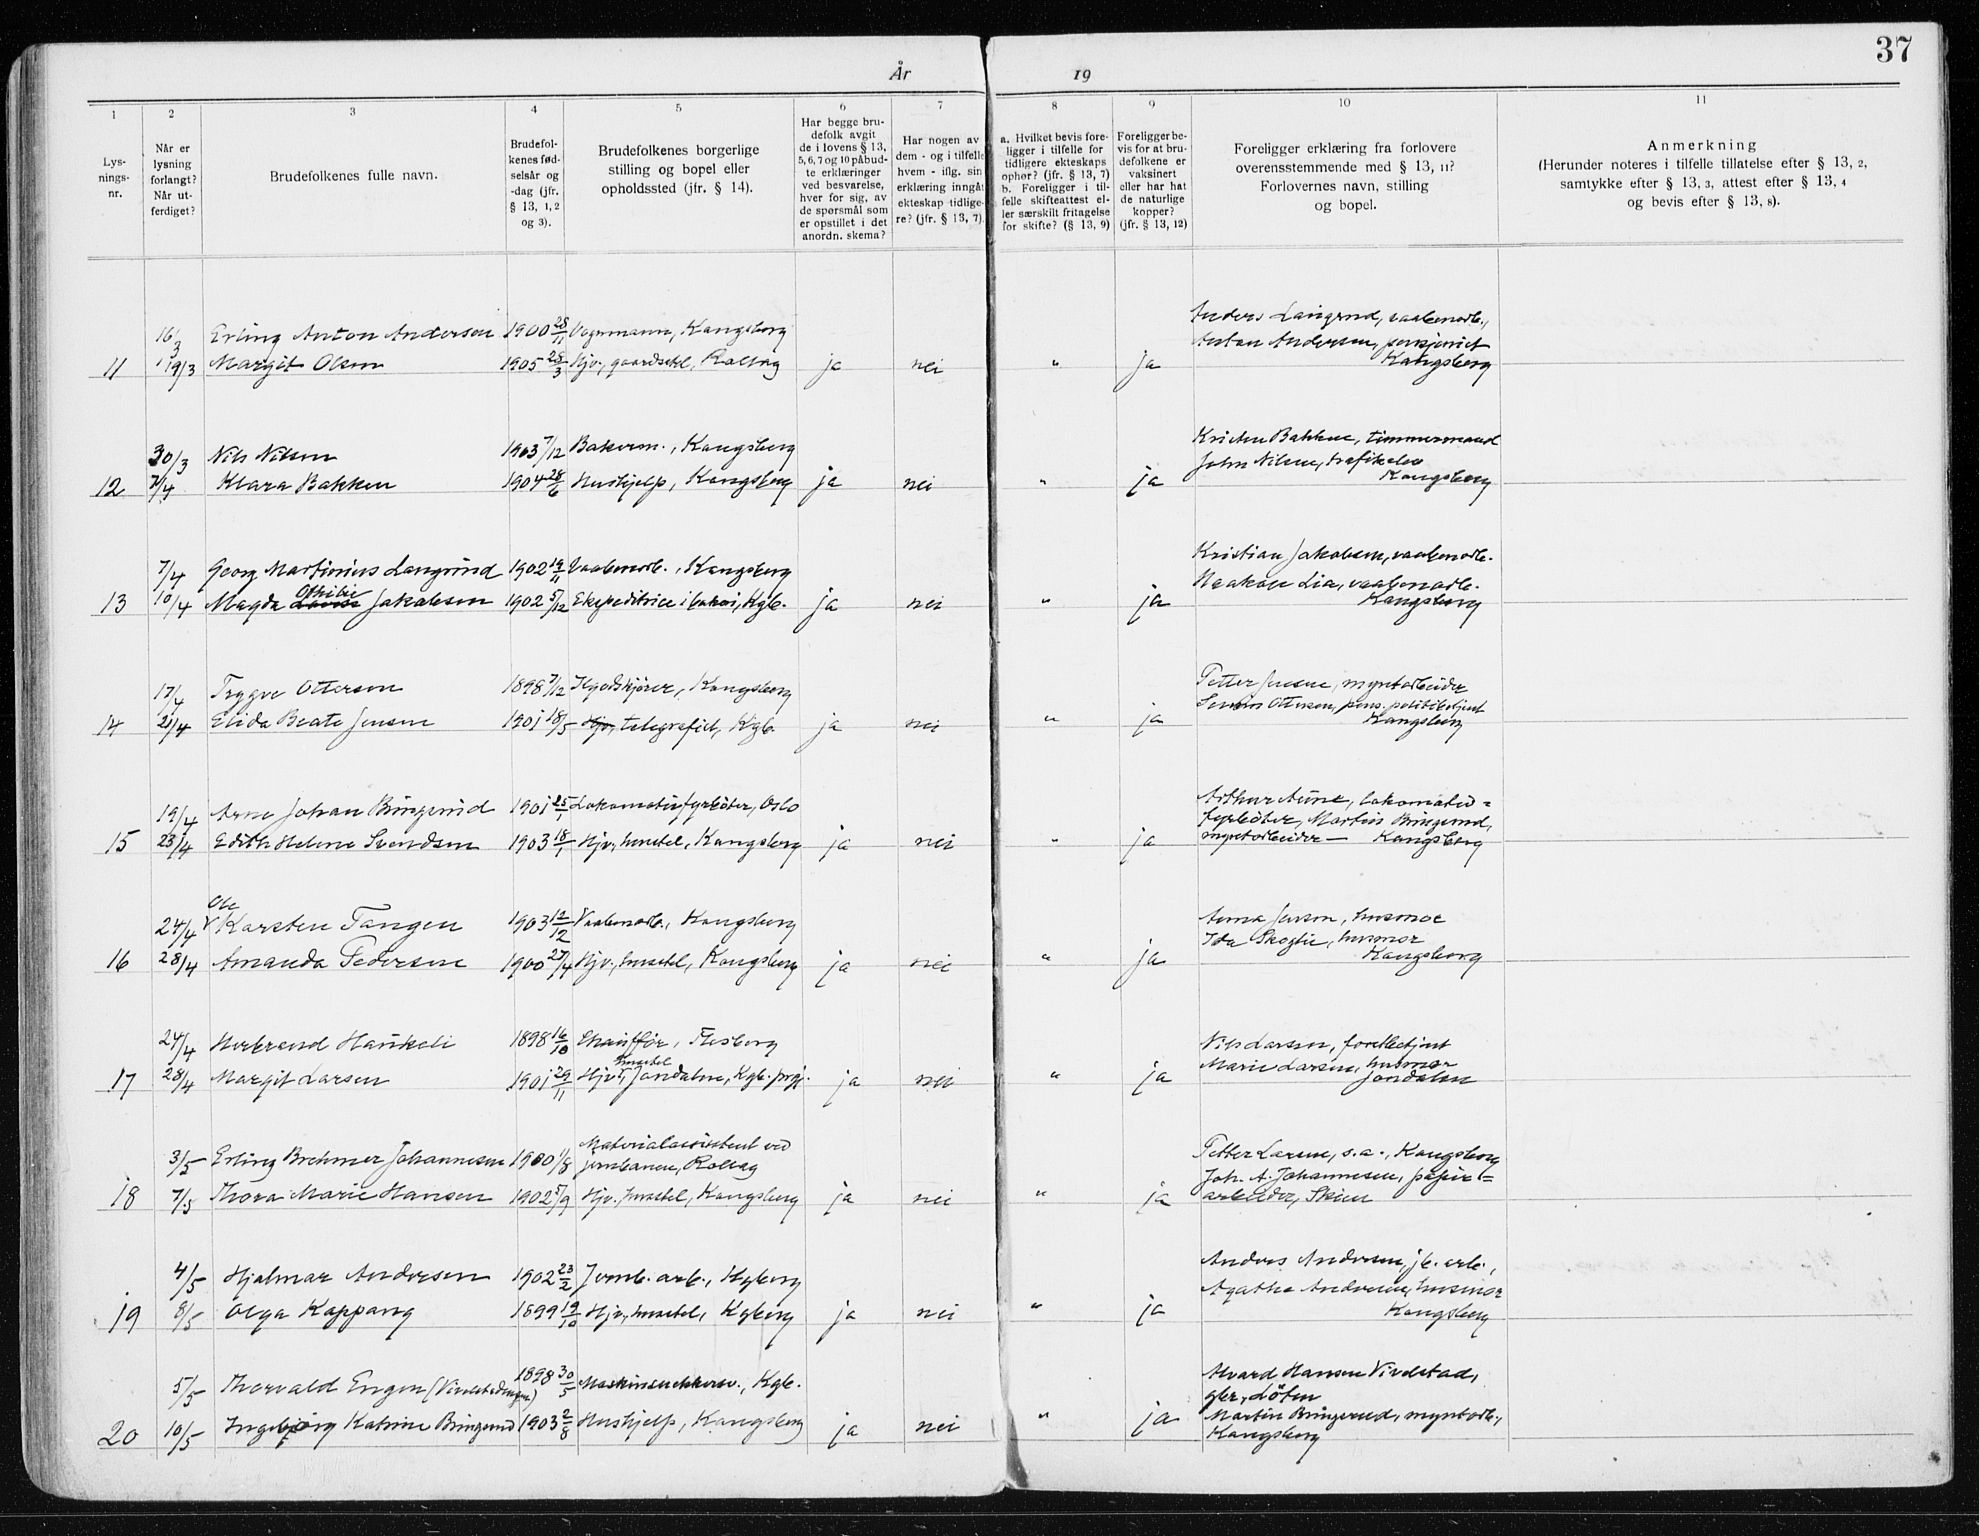 37
År 19
1 2 3 4 5 6 7 8 9 10 11
Lysningsnr.
Når er lysning forlangt? Når utferdiget?
Brudefolkenes fulle navn.
Brudefolkenes fødselsår og -dag (jfr. § 13, 1, 2 og 3).
Brudefolkenes borgerlige stilling og bopel eller opholdssted (jfr. § 14).
Har begge brudefolk avgit de i lovens § 13, 5, 6, 7 og 10 påbudte erklæringer ved besvarelse, hver for sig, av de spørsmål som er opstillet i det anordn. skema?
Har nogen av dem - og i tilfelle hvem - iflg. sin erklæring inngåt ekteskap tidligere? (jfr. § 13, 7).
a. Hvilket bevis foreligger i tilfelle for tidligere ekteskaps ophør? (jfr. § 13, 7) b. Foreligger i tilfelle skifteattest eller særskilt fritagelse for skifte? (§ 13, 9)
Foreligger bevis for at brudefolkene er vaksinert eller har hat de naturlige kopper? (jfr. § 13, 12)
Foreligger erklæring fra forlovere overensstemmende med § 13, 11? Forlovernes navn, stilling og bopel.
Anmerkning (Herunder noteres i tilfelle tillatelse efter § 13, 2, samtykke efter § 13, 3, attest efter § 13, 4 og bevis efter § 13, 8).
16/3 Erling Anton Andersen 1900 28/11 Vognmann, Kongsberg
11 19/3 Margit Olsen 1905 28/3 Hjv., gaardsstel, Rollag ja nei " ja
Anders Langrud, vaabenarb.,
Anton Andersen, pensjonist
Kongsberg
30/3 Nils Nilsen 1903 7/12 Bakersv., Kongsberg
12 7/4 Klara Bakken 1904 28/6 Hushjelp, Kongsberg ja nei " ja
Kristen Bakken, timmermand
John Nilsen, trafikelev
Kongsberg
7/4 Georg Martinius Langrud 1902 19/11 Vaabenarb., Kongsberg
13 10/4 Magda Othilie Jakobsen 1902 5/12 Ekspeditrice i bakeri, Kgb. ja nei " ja
Kristian Jakobsen, vaabenarb.
Haakon Lia, vaabenarb.
Kongsberg
17/4 Trygve Ottersen 1898 7/12 Ilgodskjører, Kongsberg
14 21/4 Elida Beate Jensen 1901 18/5 Hjv, telegrafist, Kgb. ja nei " ja
Petter Jensen, myntarbeider
Ottersen, pens. politibetjent
Kongsberg
19/4 Arne Johan Bringerud 1901 25/1 Lokomotivfyrbøter, Oslo
15 23/4 Edith Helene Svendsen 1903 18/1 Hjv., husstel, Kongsberg ja nei " ja
Arthur Aune, lokomotiv=
fyrbøter, Martin Bringerud,
myntarbeider — Kongsberg
Ole
24/4 Karsten Tangen 1903 12/12 Vaabenarb., Kongsberg
16 28/4 Amanda Pedersen 1900 27/4 Hjv., husstel, Kongsberg ja nei " ja
Anna Jensen, husmor
Ida Skoglie, husmor
Kongsberg
24/4 Herbrand Haukeli 1898 16/10 Chauffør, Flesberg
17 28/4 Margit Larsen 1901 29/11 Hjv., husstel Jondalen, Kgb. prgj. ja nei " ja
Nils Larsen, forstbetjent
Marie Larsen, husmor
Jondalen
3/5 Erling Brehmer Johannesen 1900 1/8 Materialassistent ved
jernbanen, Rollag
18 7/5 Thora Marie Hansen 1902 5/9 Hjv., husstel, Kongsberg ja nei " ja
Petter Larsen, s.a., Kongsberg
Joh. A. Johannesen, papir=
arbeider, Skien
4/5 Hjalmar Andersen 1902 23/2 Jernb. arb., Kgberg
19 8/5 Olga Kappang 1899 19/10 Hjv., husstel, Kgberg ja nei " ja
Anders Andersen, jb. arb.,
Agathe Andersen, husmor
Kongsberg
5/5 Thorvald Engen (Vivelstadengen) 1898 30/5 Maskinsnekkersv., Kgb.
20 10/5 Ingebjørg Katrine Bringerud 1903 2/8 Hushjelp, Kongsberg ja nei " ja
Alvard Hansen Vivelstad,
gbr., Løten
Martin Bringerud, myntarb.,
Kongsberg